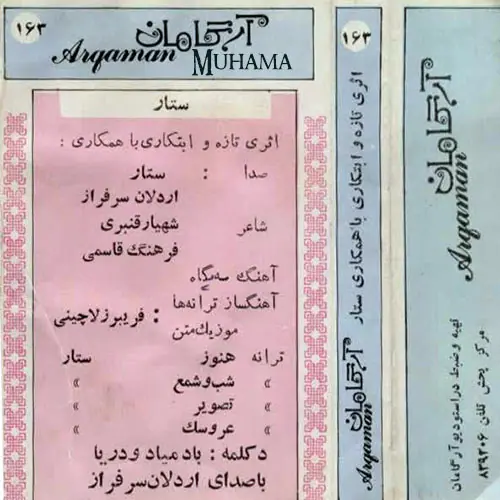 ۱۶۳
آرگامان
Arqaman MUHAMA
ستار
اثری تازه و ابتکاری با همکاری :
صدا : ستار
اردلان سرفراز
شاعر شهیار قنبری
فرهنگ قاسمی
آهنگ سه‌گاه
آهنگساز ترانه‌ها
موزیک متن : فریبرز لاچینی
ترانه هنوز ستار
» شب و شمع »
» تصویر »
» عروسک »
دکلمه : بادمیاد و دریا
با صدای اردلان سرفراز
۱۶۳
اثری تازه و ابتکاری با همکاری ستار
آرگامان
Arqaman
آرگامان
Arqaman
تهیه و ضبط در استودیو آرگامان
مرکز پخش تلفن ۸۳۹۲۰۶